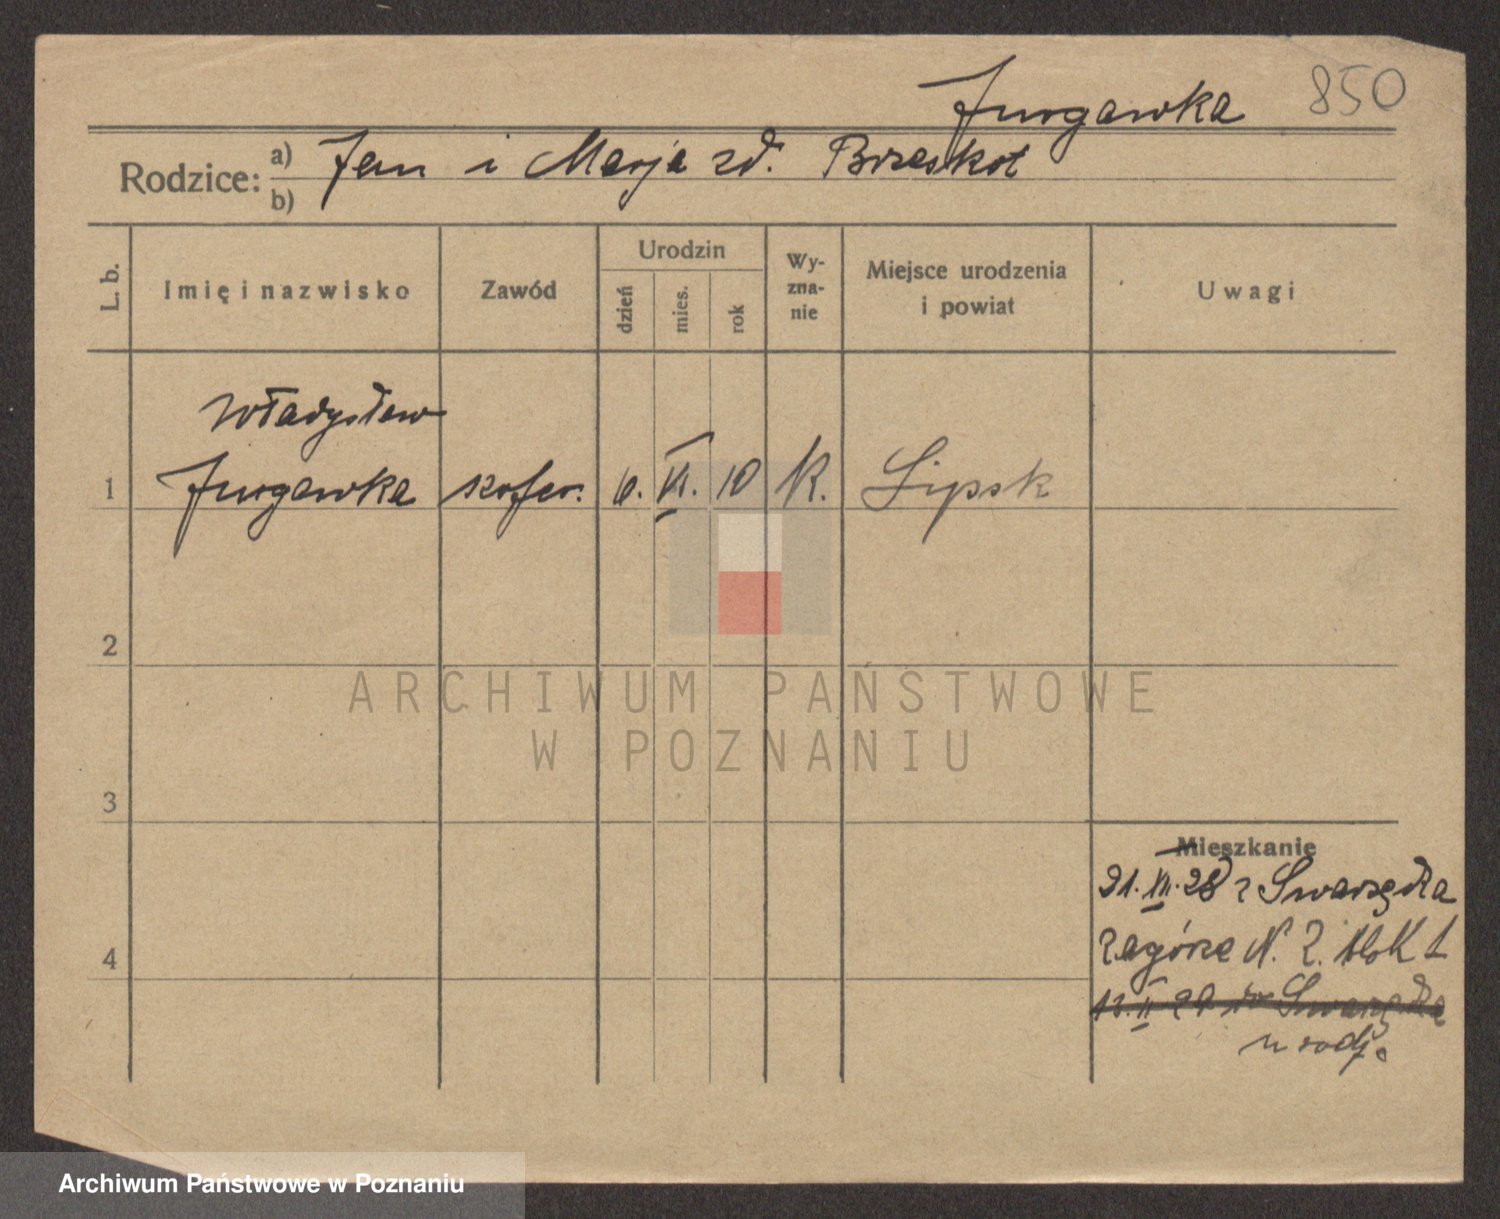 Jurgawka 850
Rodzice: a) Jan i Marja zd. Brzeskot
b)
L. b. Imię i nazwisko Zawód Urodzin dzień mies. rok Wyznanie Miejsce urodzenia i powiat Uwagi
Władysław
1 Jurgawka szofer. 6. VI. 10 K. Lipsk
2
ARCHIWUM PAŃSTWOWE
W POZNANIU
3
Mieszkanie
21. VII. 28 z Swarzędza
4 Zagórze N. 2. blok 1
II 29 do Swarzędza
u rodz.
Archiwum Państwowe w Poznaniu